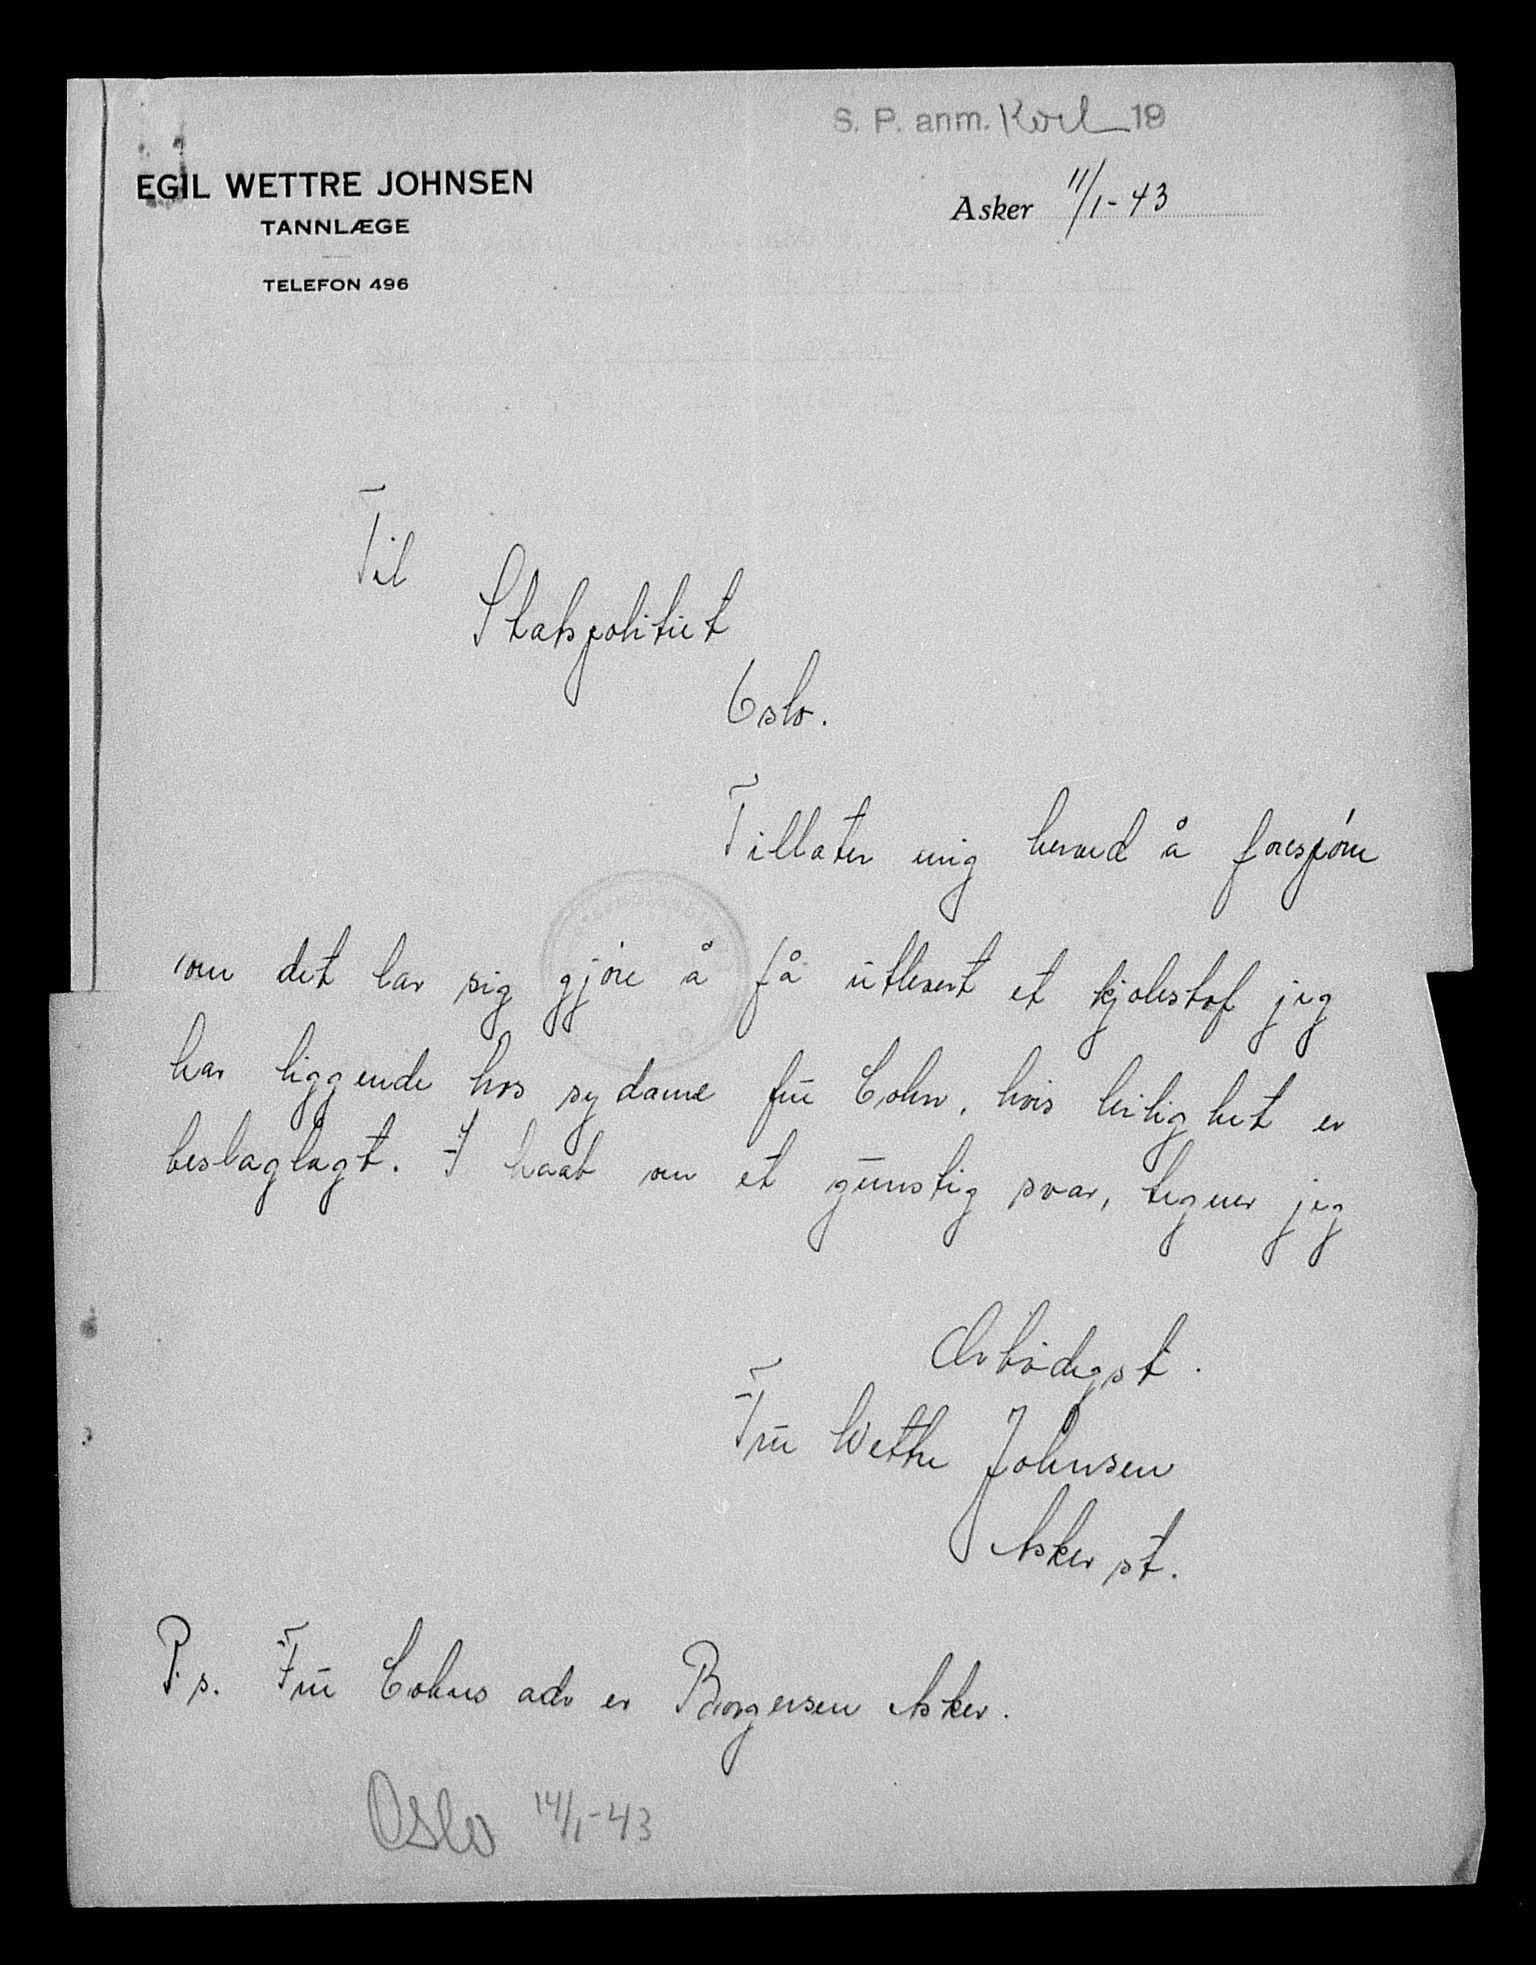 S. P. anm. 19
EGIL WETTRE JOHNSEN
TANNLÆGE
TELEFON 496
Asker 11/1-43
Til
Statspolitiet
Oslo.
Tillater mig herved å forespóre
om det lar sig gjóre å få utlevert et kjolestof jeg
har liggende hos sydame frü Cohn, hvis leilighet er
beslaglagt. I haab om et günstig svar, tegner jeg
Ærbódigst.
Frü Wettre Johnsen
Asker st.
P.s. Frü Cohns adr er Borgersen Asker.
Oslo 14/1-43